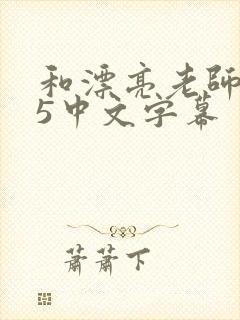 和漂亮老師
5中文字幕
蕭蕭下